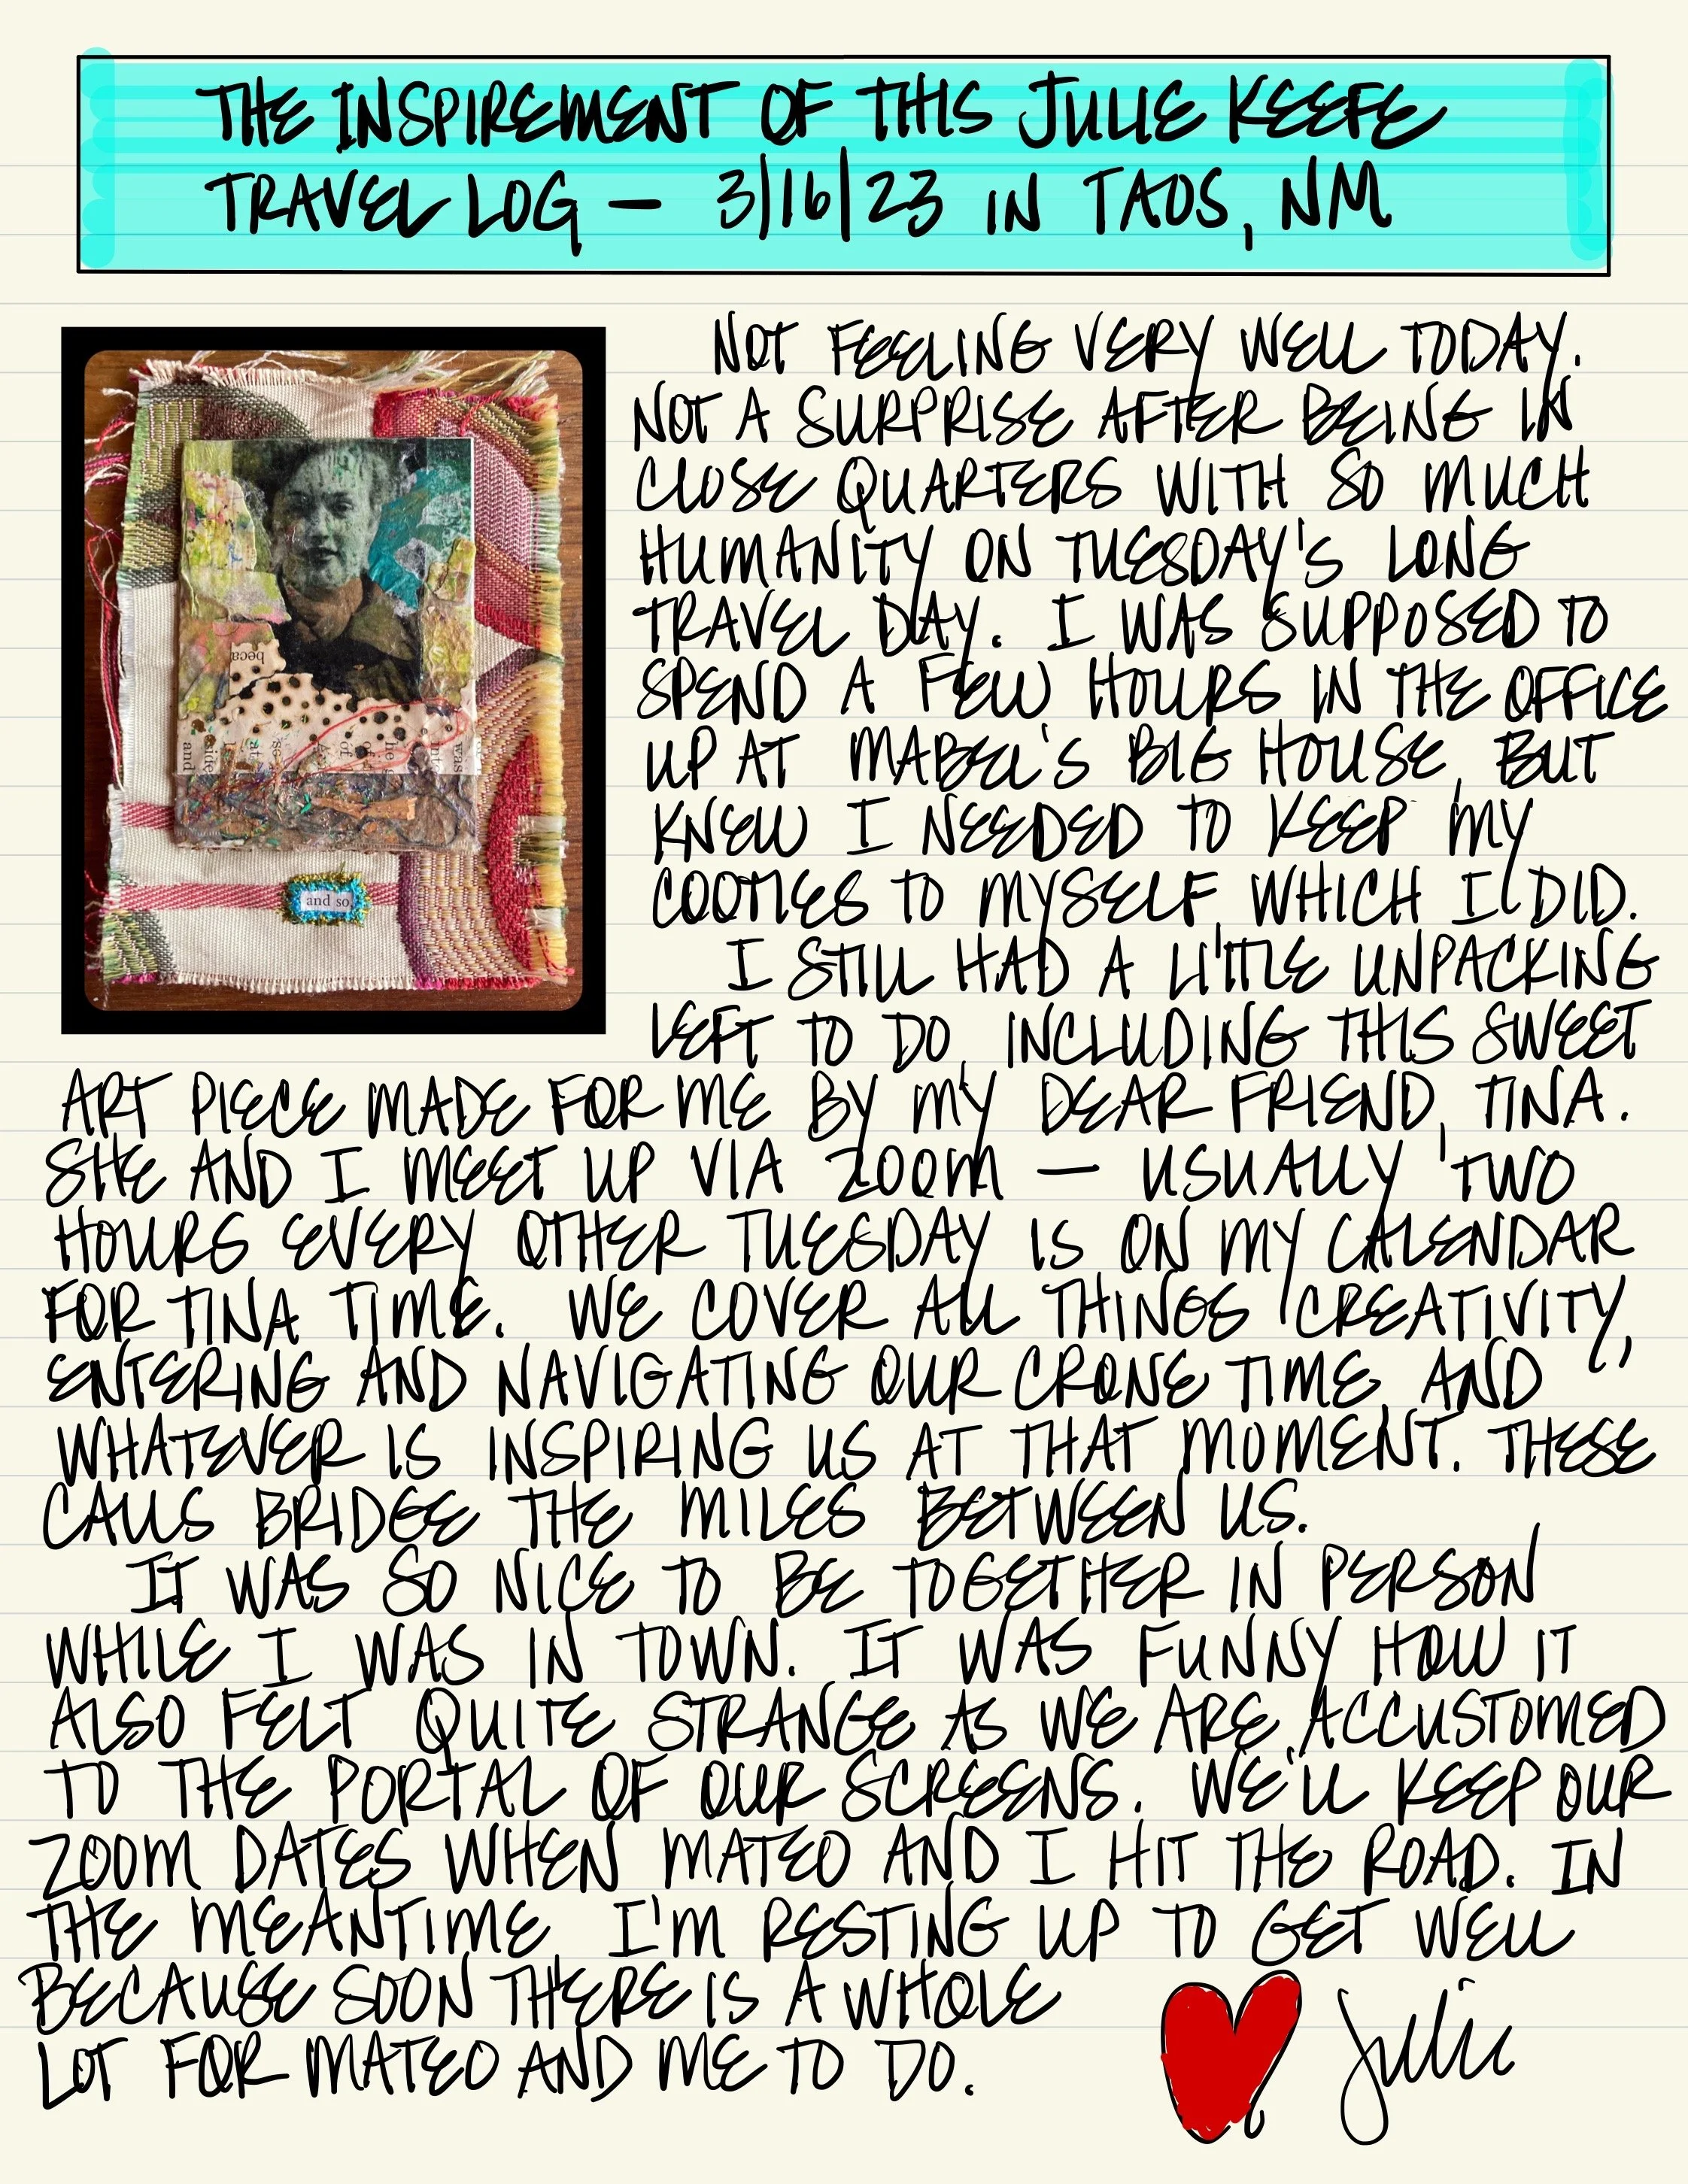 THE INSPIREMENT OF THIS JULIE KEEFE
TRAVEL LOG — 3/16/23 IN TAOS, NM
NOT FEELING VERY WELL TODAY.
NOT A SURPRISE AFTER BEING IN
CLOSE QUARTERS WITH SO MUCH
HUMANITY ON TUESDAY'S LONG
TRAVEL DAY. I WAS SUPPOSED TO
SPEND A FEW HOURS IN THE OFFICE
UP AT MABEL'S BIG HOUSE, BUT
KNEW I NEEDED TO KEEP MY
COOTIES TO MYSELF, WHICH I DID.
I STILL HAD A LITTLE UNPACKING
LEFT TO DO, INCLUDING THIS SWEET
ART PIECE MADE FOR ME BY MY DEAR FRIEND, TINA.
SHE AND I MEET UP VIA ZOOM — USUALLY TWO
HOURS EVERY OTHER TUESDAY IS ON MY CALENDAR
FOR TINA TIME. WE COVER ALL THINGS CREATIVITY,
ENTERING AND NAVIGATING OUR CRONE TIME, AND
WHATEVER IS INSPIRING US AT THAT MOMENT. THESE
CALLS BRIDGE THE MILES BETWEEN US.
IT WAS SO NICE TO BE TOGETHER IN PERSON
WHILE I WAS IN TOWN. IT WAS FUNNY HOW IT
ALSO FELT QUITE STRANGE AS WE ARE ACCUSTOMED
TO THE PORTAL OF OUR SCREENS. WE'LL KEEP OUR
ZOOM DATES WHEN MATEO AND I HIT THE ROAD. IN
THE MEANTIME, I'M RESTING UP TO GET WELL
BECAUSE SOON THERE IS A WHOLE
LOT FOR MATEO AND ME TO DO.
Julie
beca
and
side
of
he
was
and so